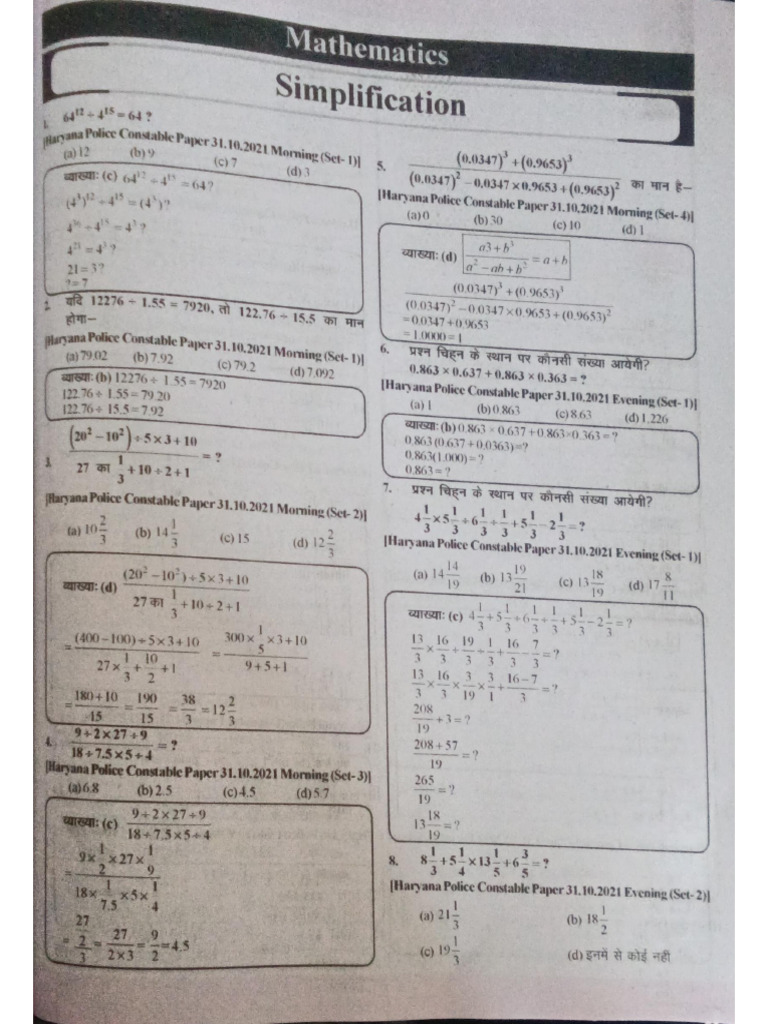 Mathematics
Simplification
1. 64¹² ÷ 4¹⁵ = 64 ?
[Haryana Police Constable Paper 31.10.2021 Morning (Set- 1)]
(a) 12 (b) 9 (c) 7 (d) 3
व्याख्याः (c) 64¹² ÷ 4¹⁵ = 64?
(4³)¹² ÷ 4¹⁵ = (4³)?
4³⁶ ÷ 4¹⁵ = 4³ ?
4²¹ = 4³ ?
21 = 3?
?= 7
2. यदि 12276 ÷ 1.55 = 7920, तो 122.76 ÷ 15.5 का मान
होगा–
[Haryana Police Constable Paper 31.10.2021 Morning (Set- 1)]
(a) 79.02 (b) 7.92 (c) 79.2 (d) 7.092
व्याख्याः (b) 12276 ÷ 1.55 = 7920
122.76 ÷ 1.55 = 79.20
122.76 ÷ 15.5 = 7.92
3. (20² – 10²) ÷ 5 × 3 + 10 / 27 का 1/3 + 10 ÷ 2 + 1 = ?
[Haryana Police Constable Paper 31.10.2021 Morning (Set- 2)]
(a) 10 2/3 (b) 14 1/3 (c) 15 (d) 12 2/3
व्याख्याः (d) (20² – 10²) ÷ 5 × 3 + 10 / 27 का 1/3 + 10 ÷ 2 + 1
= (400 – 100) ÷ 5 × 3 + 10 / 27 × 1/3 + 10/2 + 1 = 300 × 1/5 × 3 + 10 / 9 + 5 + 1
= 180 + 10 / 15 = 190/15 = 38/3 = 12 2/3
4. 9 ÷ 2 × 27 ÷ 9 / 18 ÷ 7.5 × 5 ÷ 4 = ?
[Haryana Police Constable Paper 31.10.2021 Morning (Set- 3)]
(a) 6.8 (b) 2.5 (c) 4.5 (d) 5.7
व्याख्याः (c) 9 ÷ 2 × 27 ÷ 9 / 18 ÷ 7.5 × 5 ÷ 4
= 9 × 1/2 × 27 × 1/9 / 18 × 1/7.5 × 5 × 1/4
= 27/2 / 3 = 27 / 2 × 3 = 9/2 = 4.5
5. (0.0347)³ + (0.9653)³ / (0.0347)² – 0.0347 × 0.9653 + (0.9653)² का मान है–
[Haryana Police Constable Paper 31.10.2021 Morning (Set- 4)]
(a) 0 (b) 30 (c) 10 (d) 1
व्याख्याः (d) a3 + b³ / a² – ab + b² = a + b
(0.0347)³ + (0.9653)³ / (0.0347)² – 0.0347 × 0.9653 + (0.9653)²
= 0.0347 + 0.9653
= 1.0000 = 1
6. प्रश्न चिह्न के स्थान पर कौनसी संख्या आयेगी?
0.863 × 0.637 + 0.863 × 0.363 = ?
[Haryana Police Constable Paper 31.10.2021 Evening (Set- 1)]
(a) 1 (b) 0.863 (c) 8.63 (d) 1.226
व्याख्याः (b) 0.863 × 0.637 + 0.863 × 0.363 = ?
0.863 (0.637 + 0.0363) =?
0.863(1.000) = ?
0.863 = ?
7. प्रश्न चिह्न के स्थान पर कौनसी संख्या आयेगी?
4 1/3 × 5 1/3 ÷ 6 1/3 ÷ 1/3 + 5 1/3 – 2 1/3 = ?
[Haryana Police Constable Paper 31.10.2021 Evening (Set- 1)]
(a) 14 14/19 (b) 13 19/21 (c) 13 18/19 (d) 17 8/11
व्याख्याः (c) 4 1/3 ÷ 5 1/3 ÷ 6 1/3 ÷ 1/3 + 5 1/3 – 2 1/3 = ?
13/3 × 16/3 ÷ 19/3 ÷ 1/3 + 16/3 – 7/3 = ?
13/3 × 16/3 × 3/19 × 3/1 + 16 – 7 / 3 = ?
208/19 + 3 = ?
208 + 57 / 19 = ?
265/19 = ?
13 18/19 = ?
8. 8 1/3 ÷ 5 1/4 × 13 1/5 ÷ 6 3/5 = ?
[Haryana Police Constable Paper 31.10.2021 Evening (Set- 2)]
(a) 21 1/3 (b) 18 1/2
(c) 19 1/3 (d) इनमें से कोई नहीं